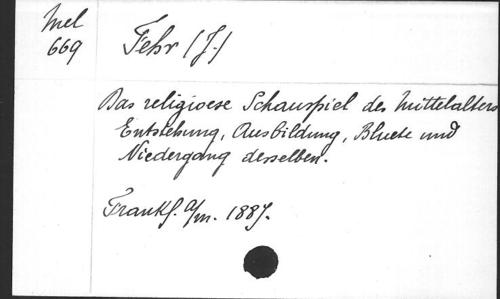 Mel
669
Fehr (J.)
Das religioese Schauspiel des Mittelalters
Entstehung, Ausbildung, Bluete und
Niedergang desselben.
Frankf. a/m. 1887.